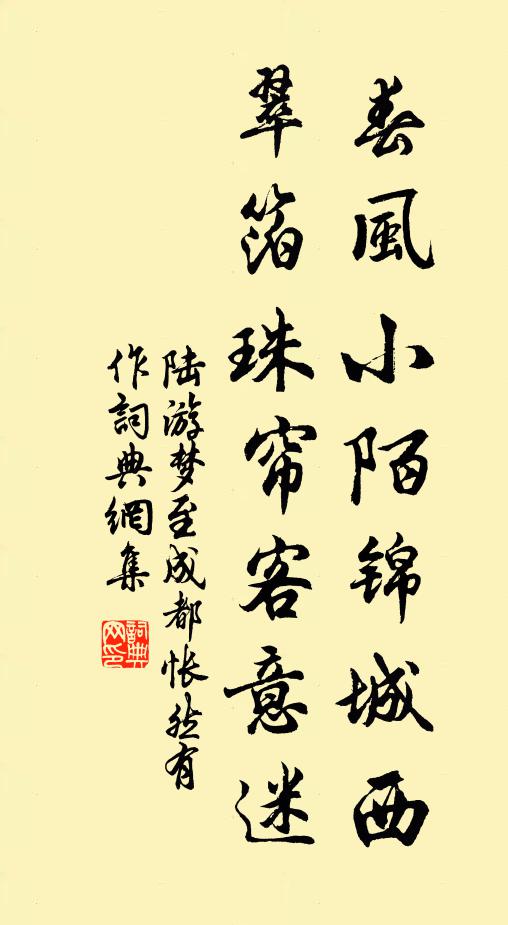 春風小陌锦城西
翠箔珠帘客意迷
陆游梦至成都怅然有
作詞典網集
詞典
网印